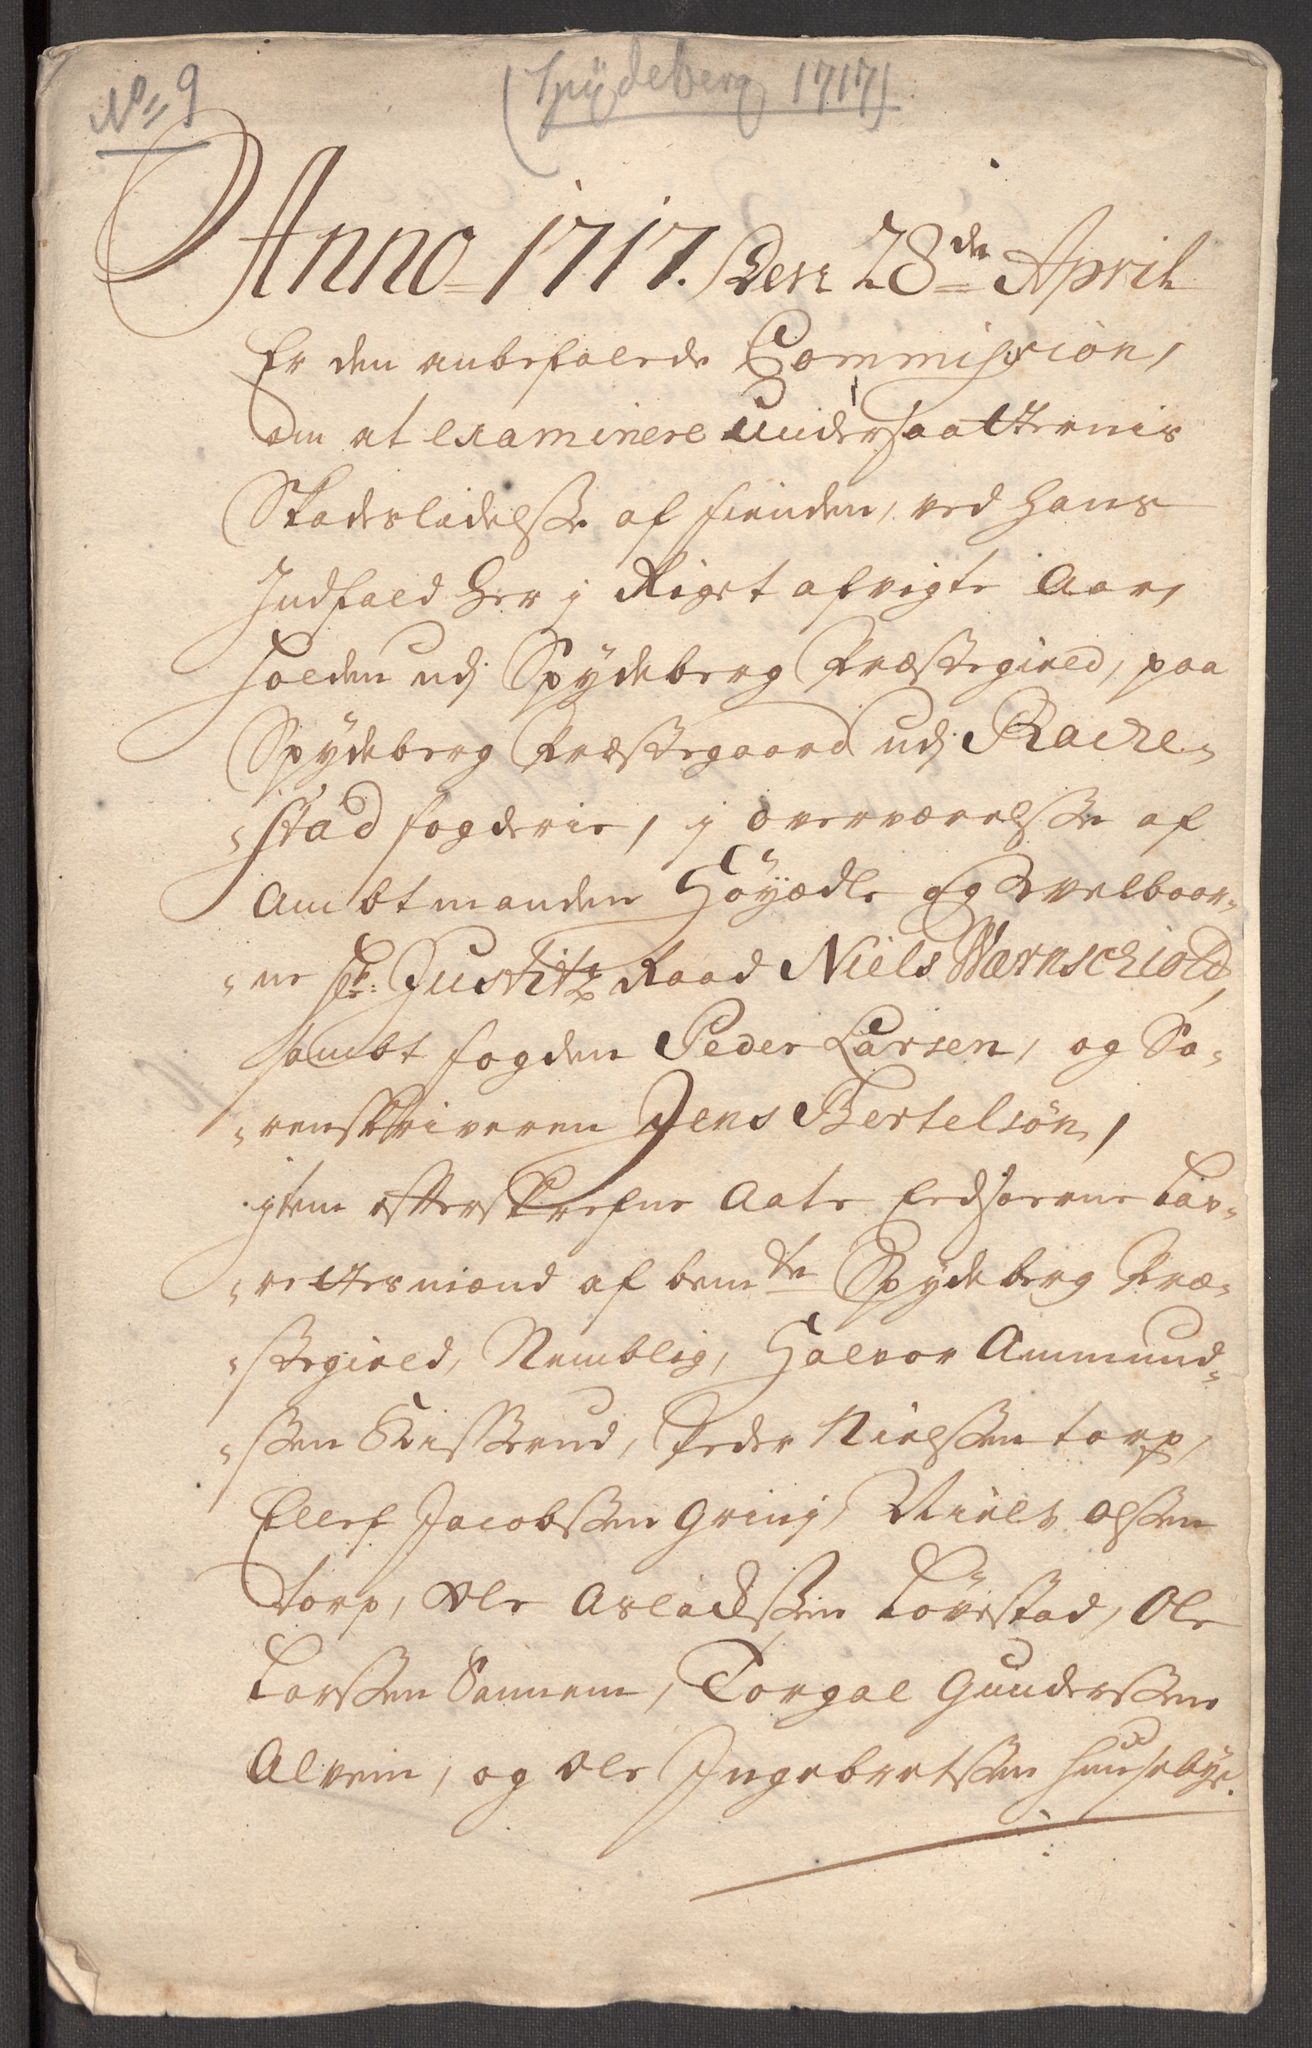 No 9
(Spÿdeberg 1717)
Anno 1717. Den 28de April
Er den anbefalede Commission,
om at examinere Undersaatternis
Skadeslidelsse af fienden, ved hans
Indfald her j Riget afvigte Aar,
holden udj Spÿdeberg Præstegield, paa
Spÿdeberg Præstegaard udj Racke-
-stad fogderie, j overværelsse af
Ambtmanden Höÿædle og Velbaar-
-ne hr: Justitz Raad Niels Wernschiold,
sambt fogden Peder Larsen, og So-
-renskriveren Jens Bertelsön,
jtem efterskrefne Aate Eedsoerne Lav-
-rettesmænd af bemte Spÿdeberg Præ-
-stegield, Nemblig, Halvor Ammund-
-ssen Kisserud, Peder Nielssen torp,
Ellef Jacobssen Grinj, Niels Olssen
torp, Ole Aslachssen Lövestad, Ole
Larssen Sannem, Torgal Gunderssen
Alvim, og Ole Ingebretssen Huusebÿe.